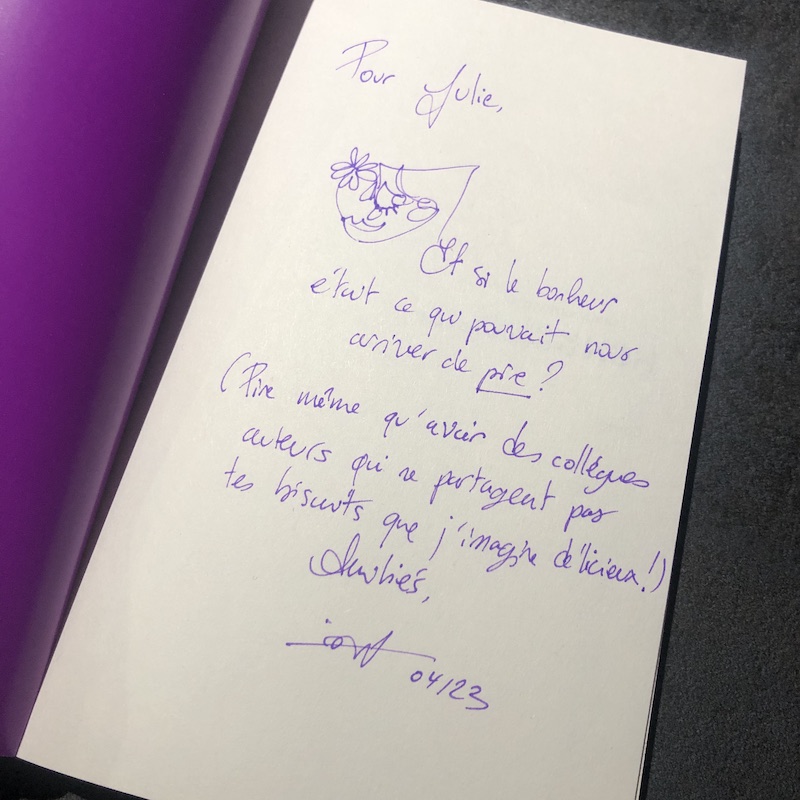 Pour Julie,
Et si le bonheur
était ce qui pouvait nous
arriver de pire ?
(Pire même qu'avoir des collègues
auteurs qui ne partagent pas
tes biscuits que j'imagine délicieux !)
Amitiés,
04/23